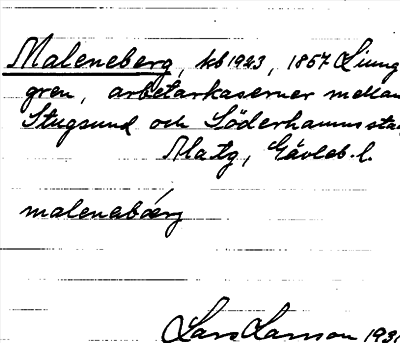 Maleneberg, kb 1923, 1857 Ljung
gren, arbetarkaserner mellan
Stugsund och Söderhamns sta
Alatg, Gävleb. l.
malenebärg
Lars Larsson 193